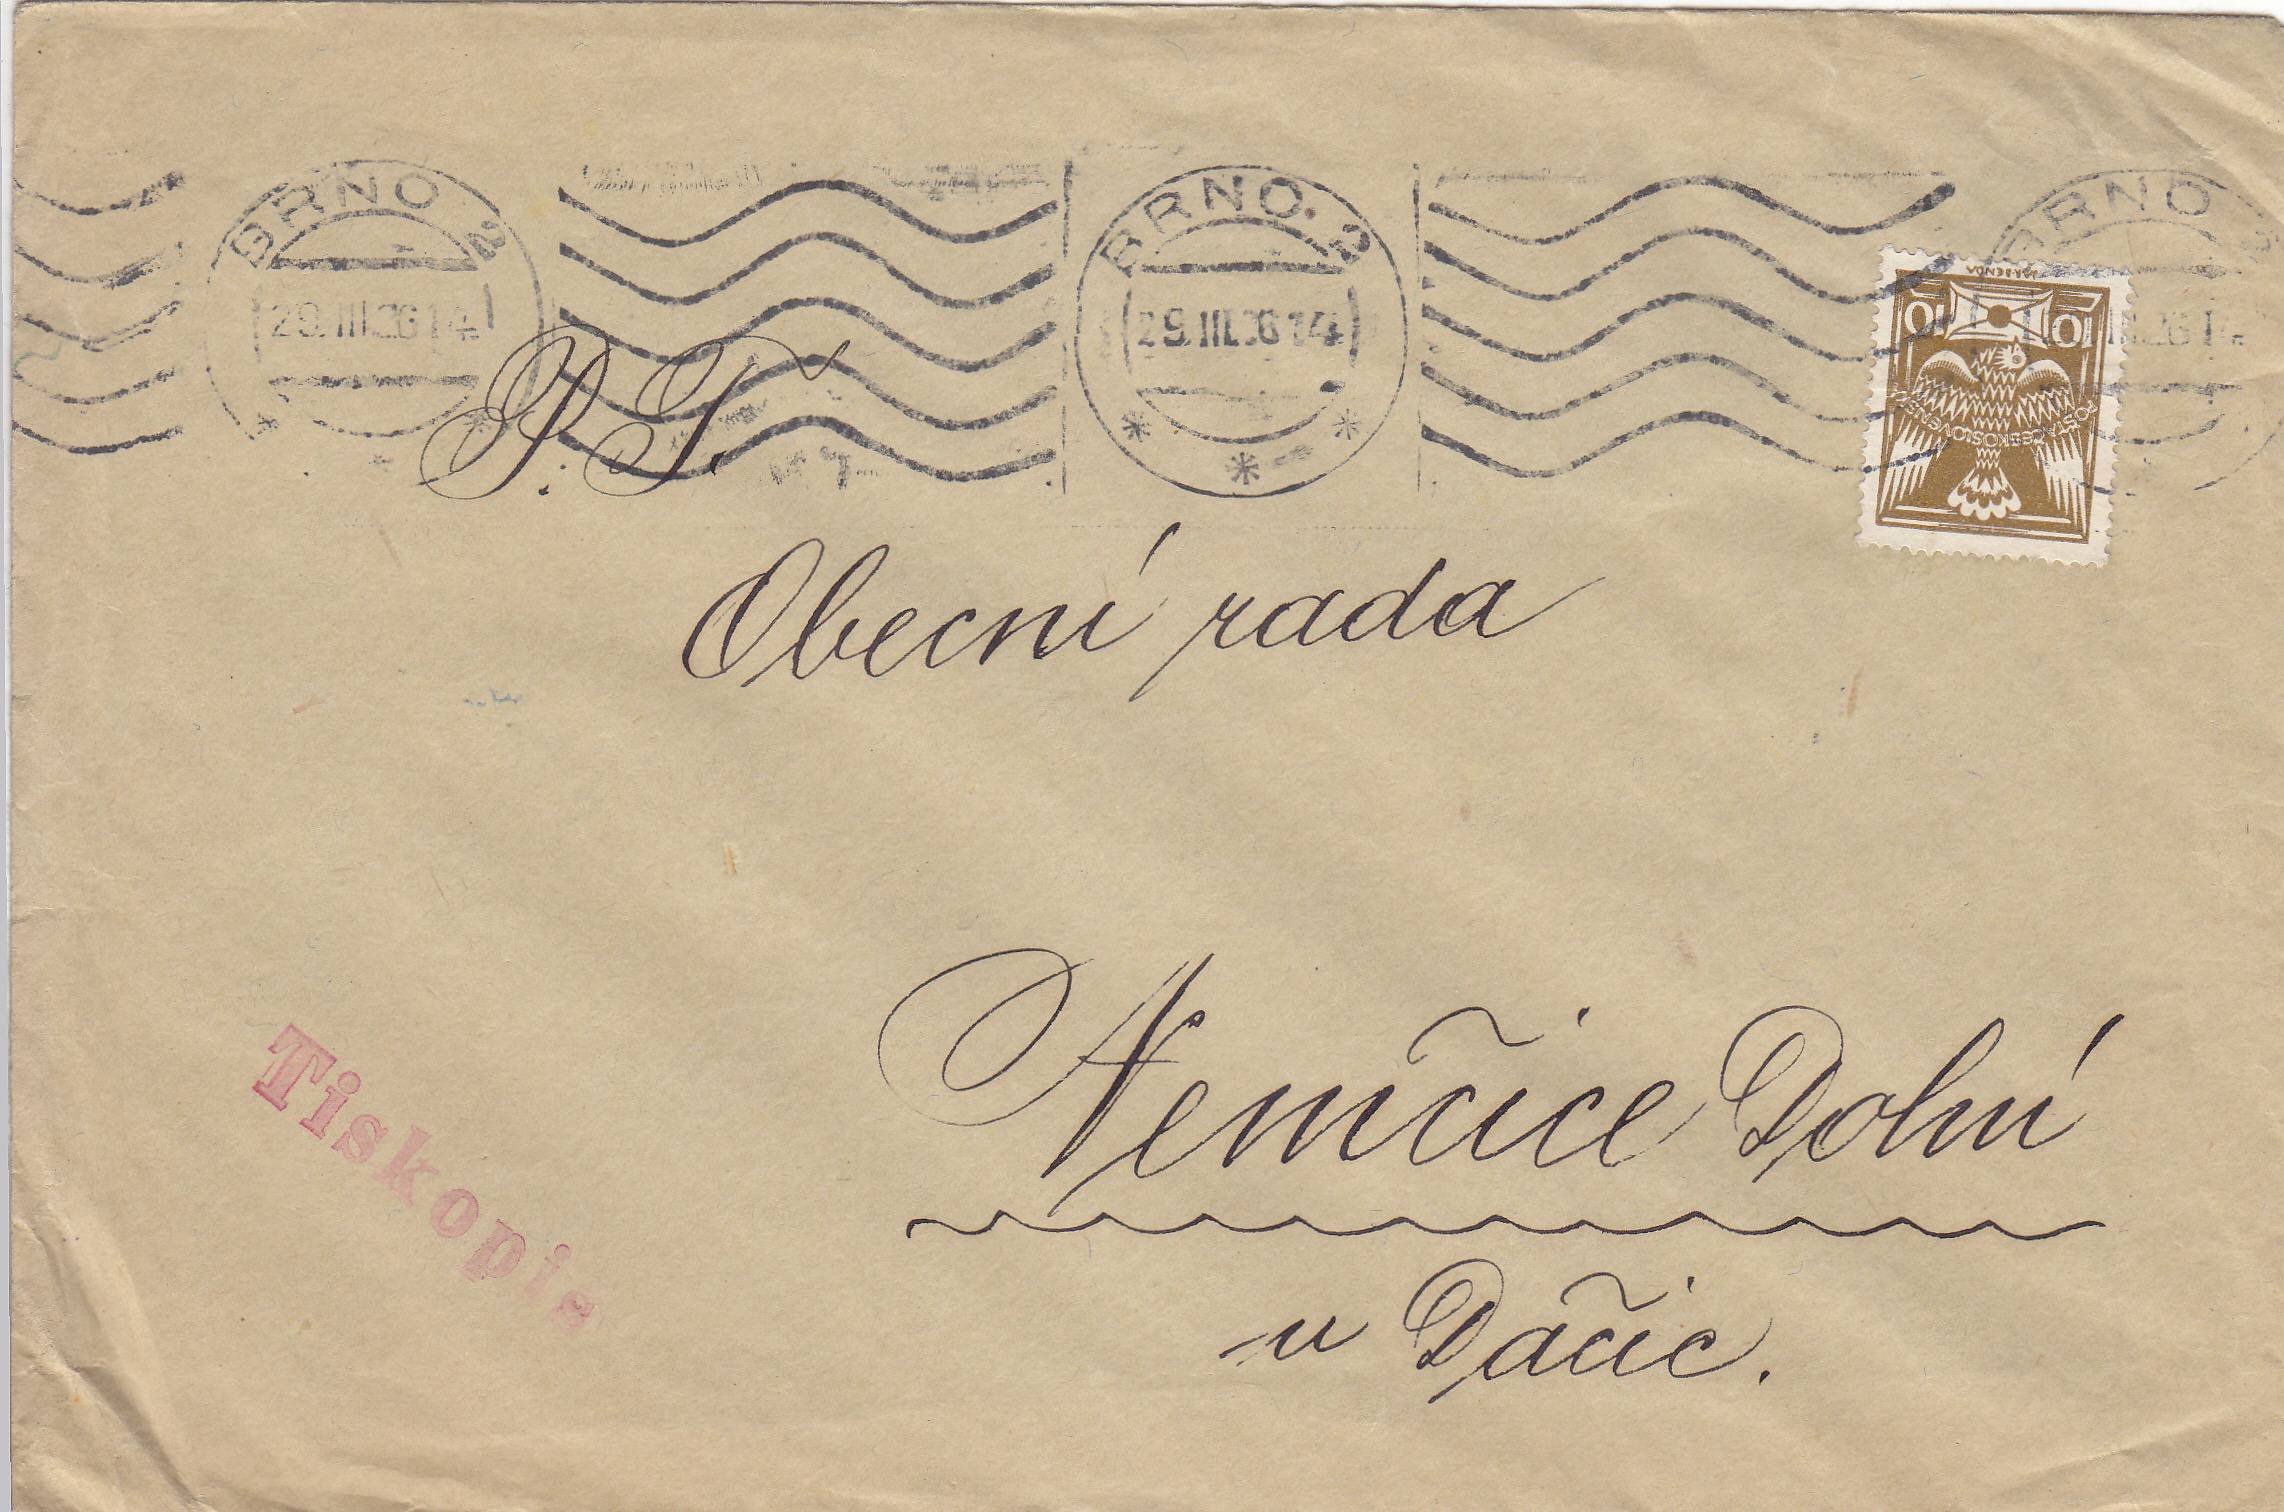 BRNO 2 BRNO 2 BRNO 2
29.III.26 14 29.III.26 14 III.26 14
10 10
POŠTA ČESKOSLOVENSKÁ
P. T.
Obecní rada
Nemčice Dolní
u Dačic.
Tiskopis